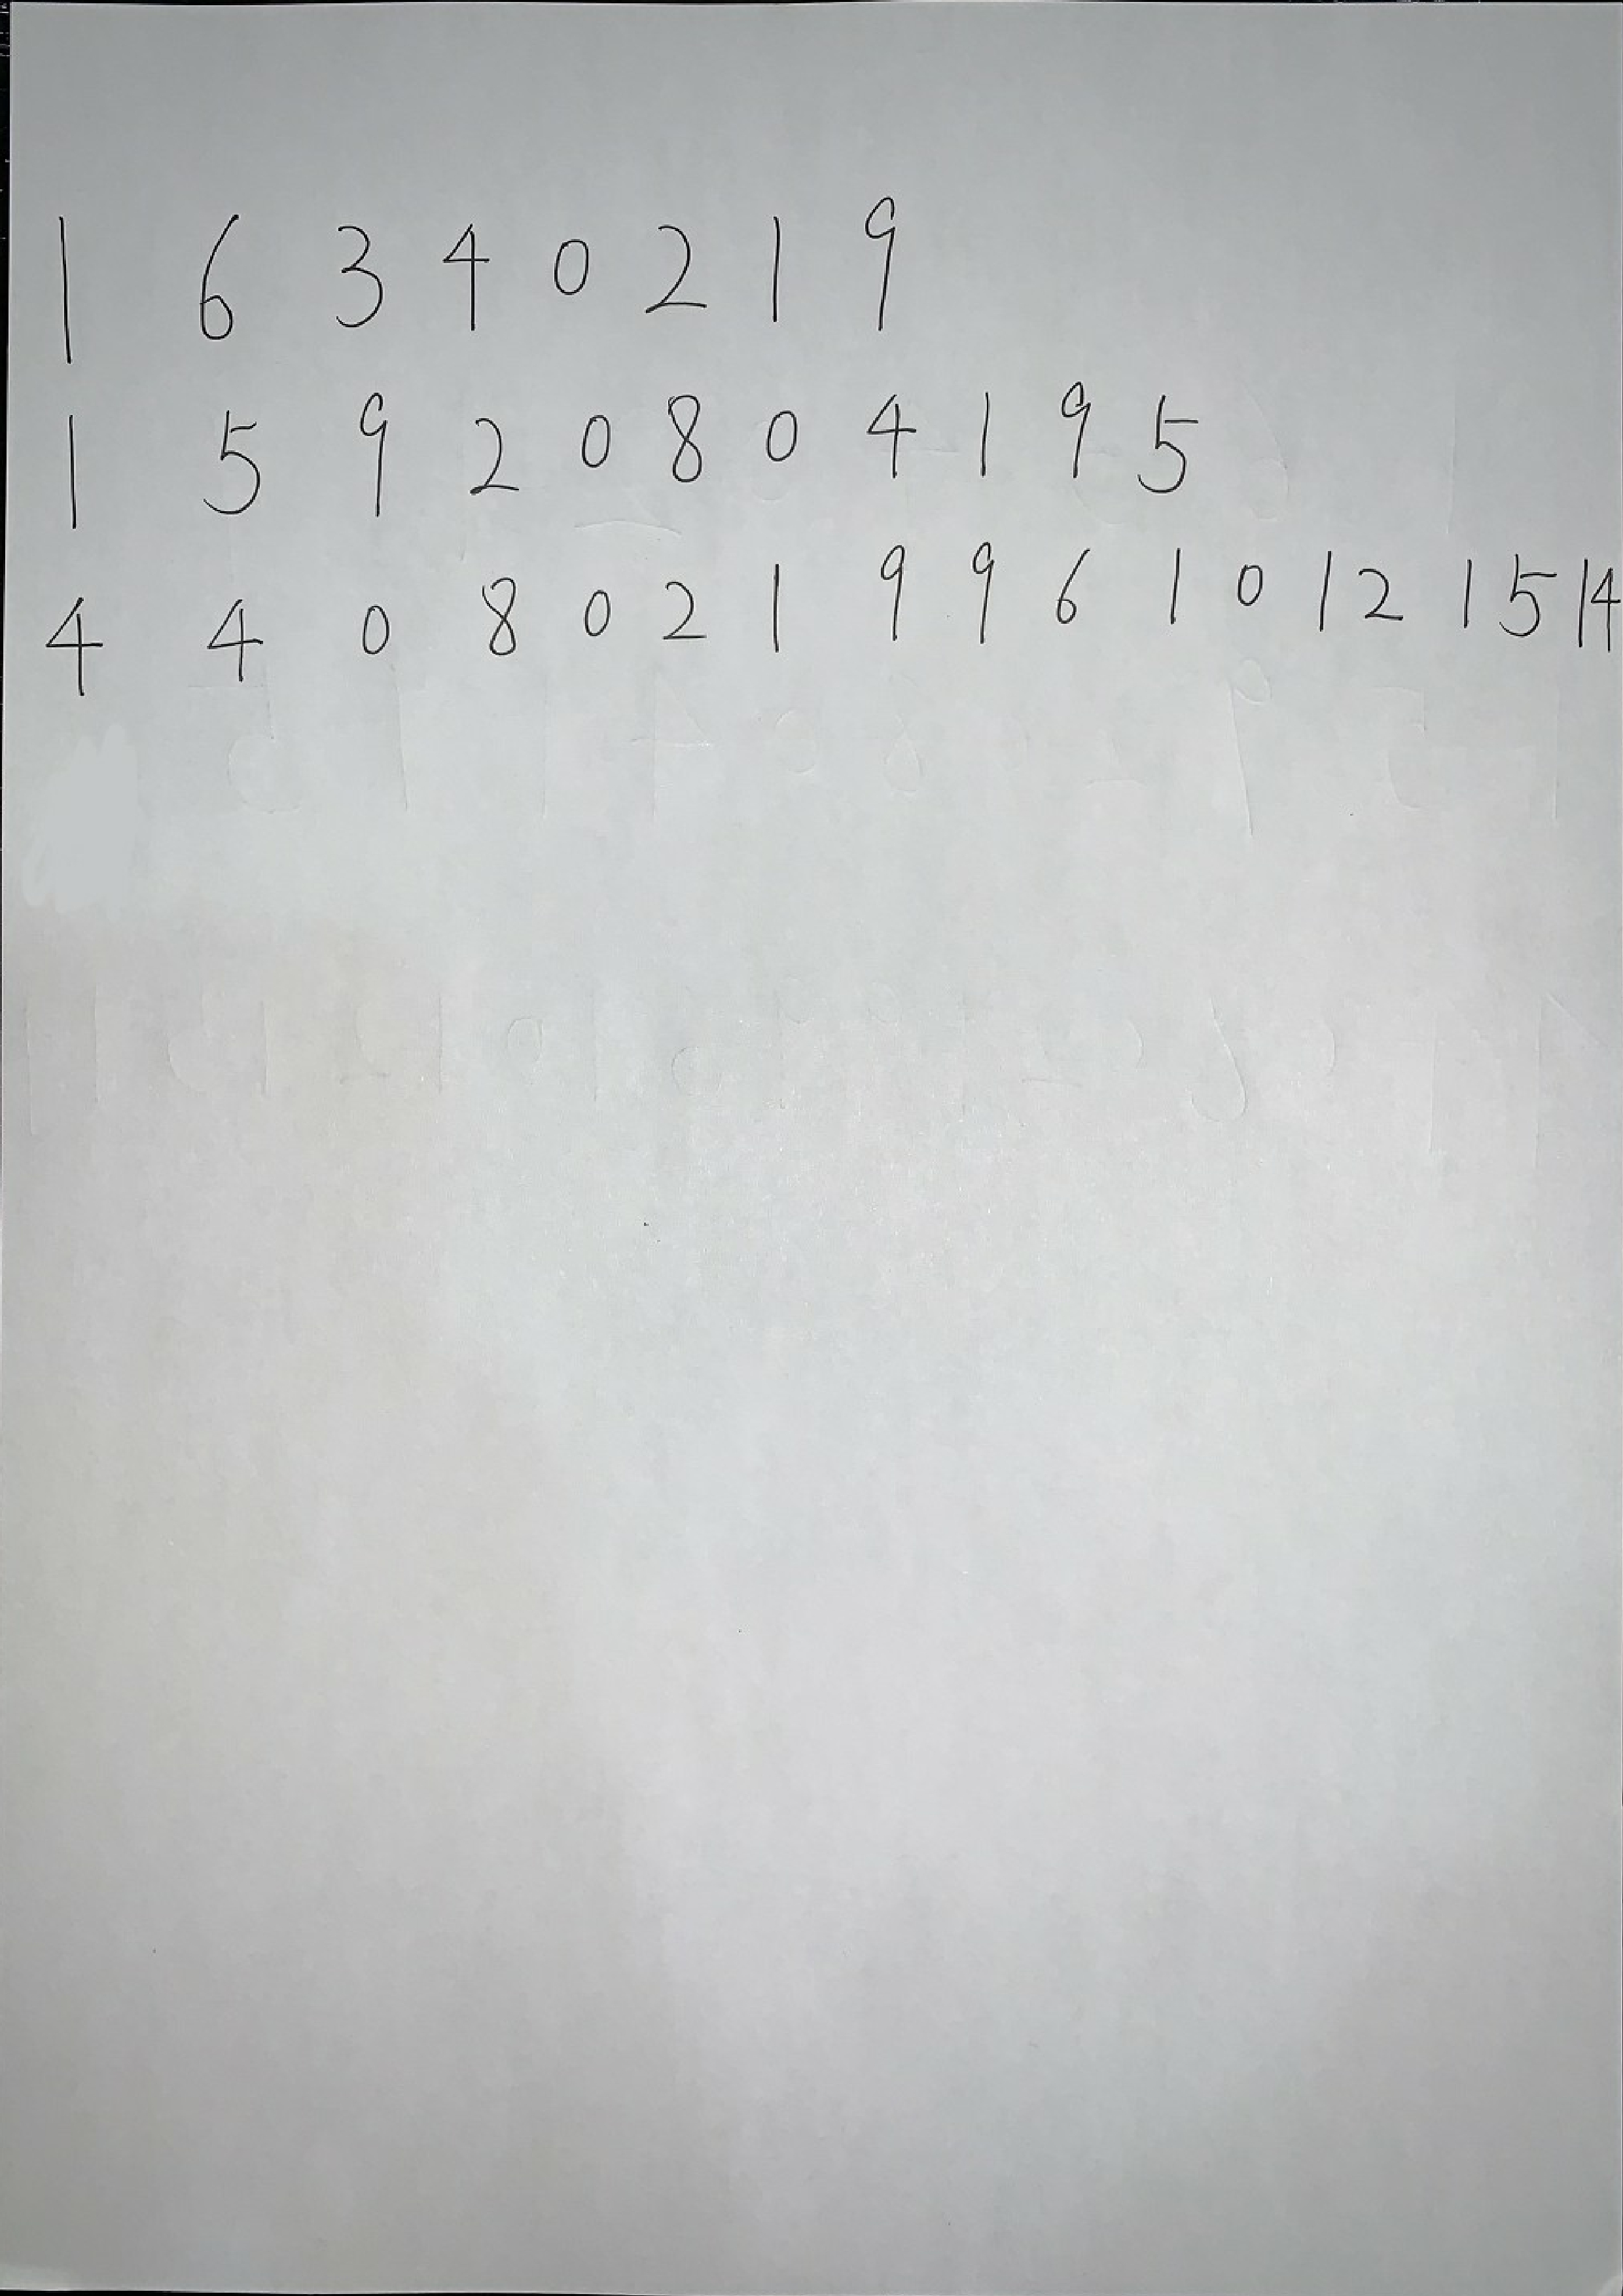 1 6 3 4 0 2 1 9
1 5 9 2 0 8 0 4 1 9 5
4 4 0 8 0 2 1 9 9 6 1 0 1 2 1 5 14